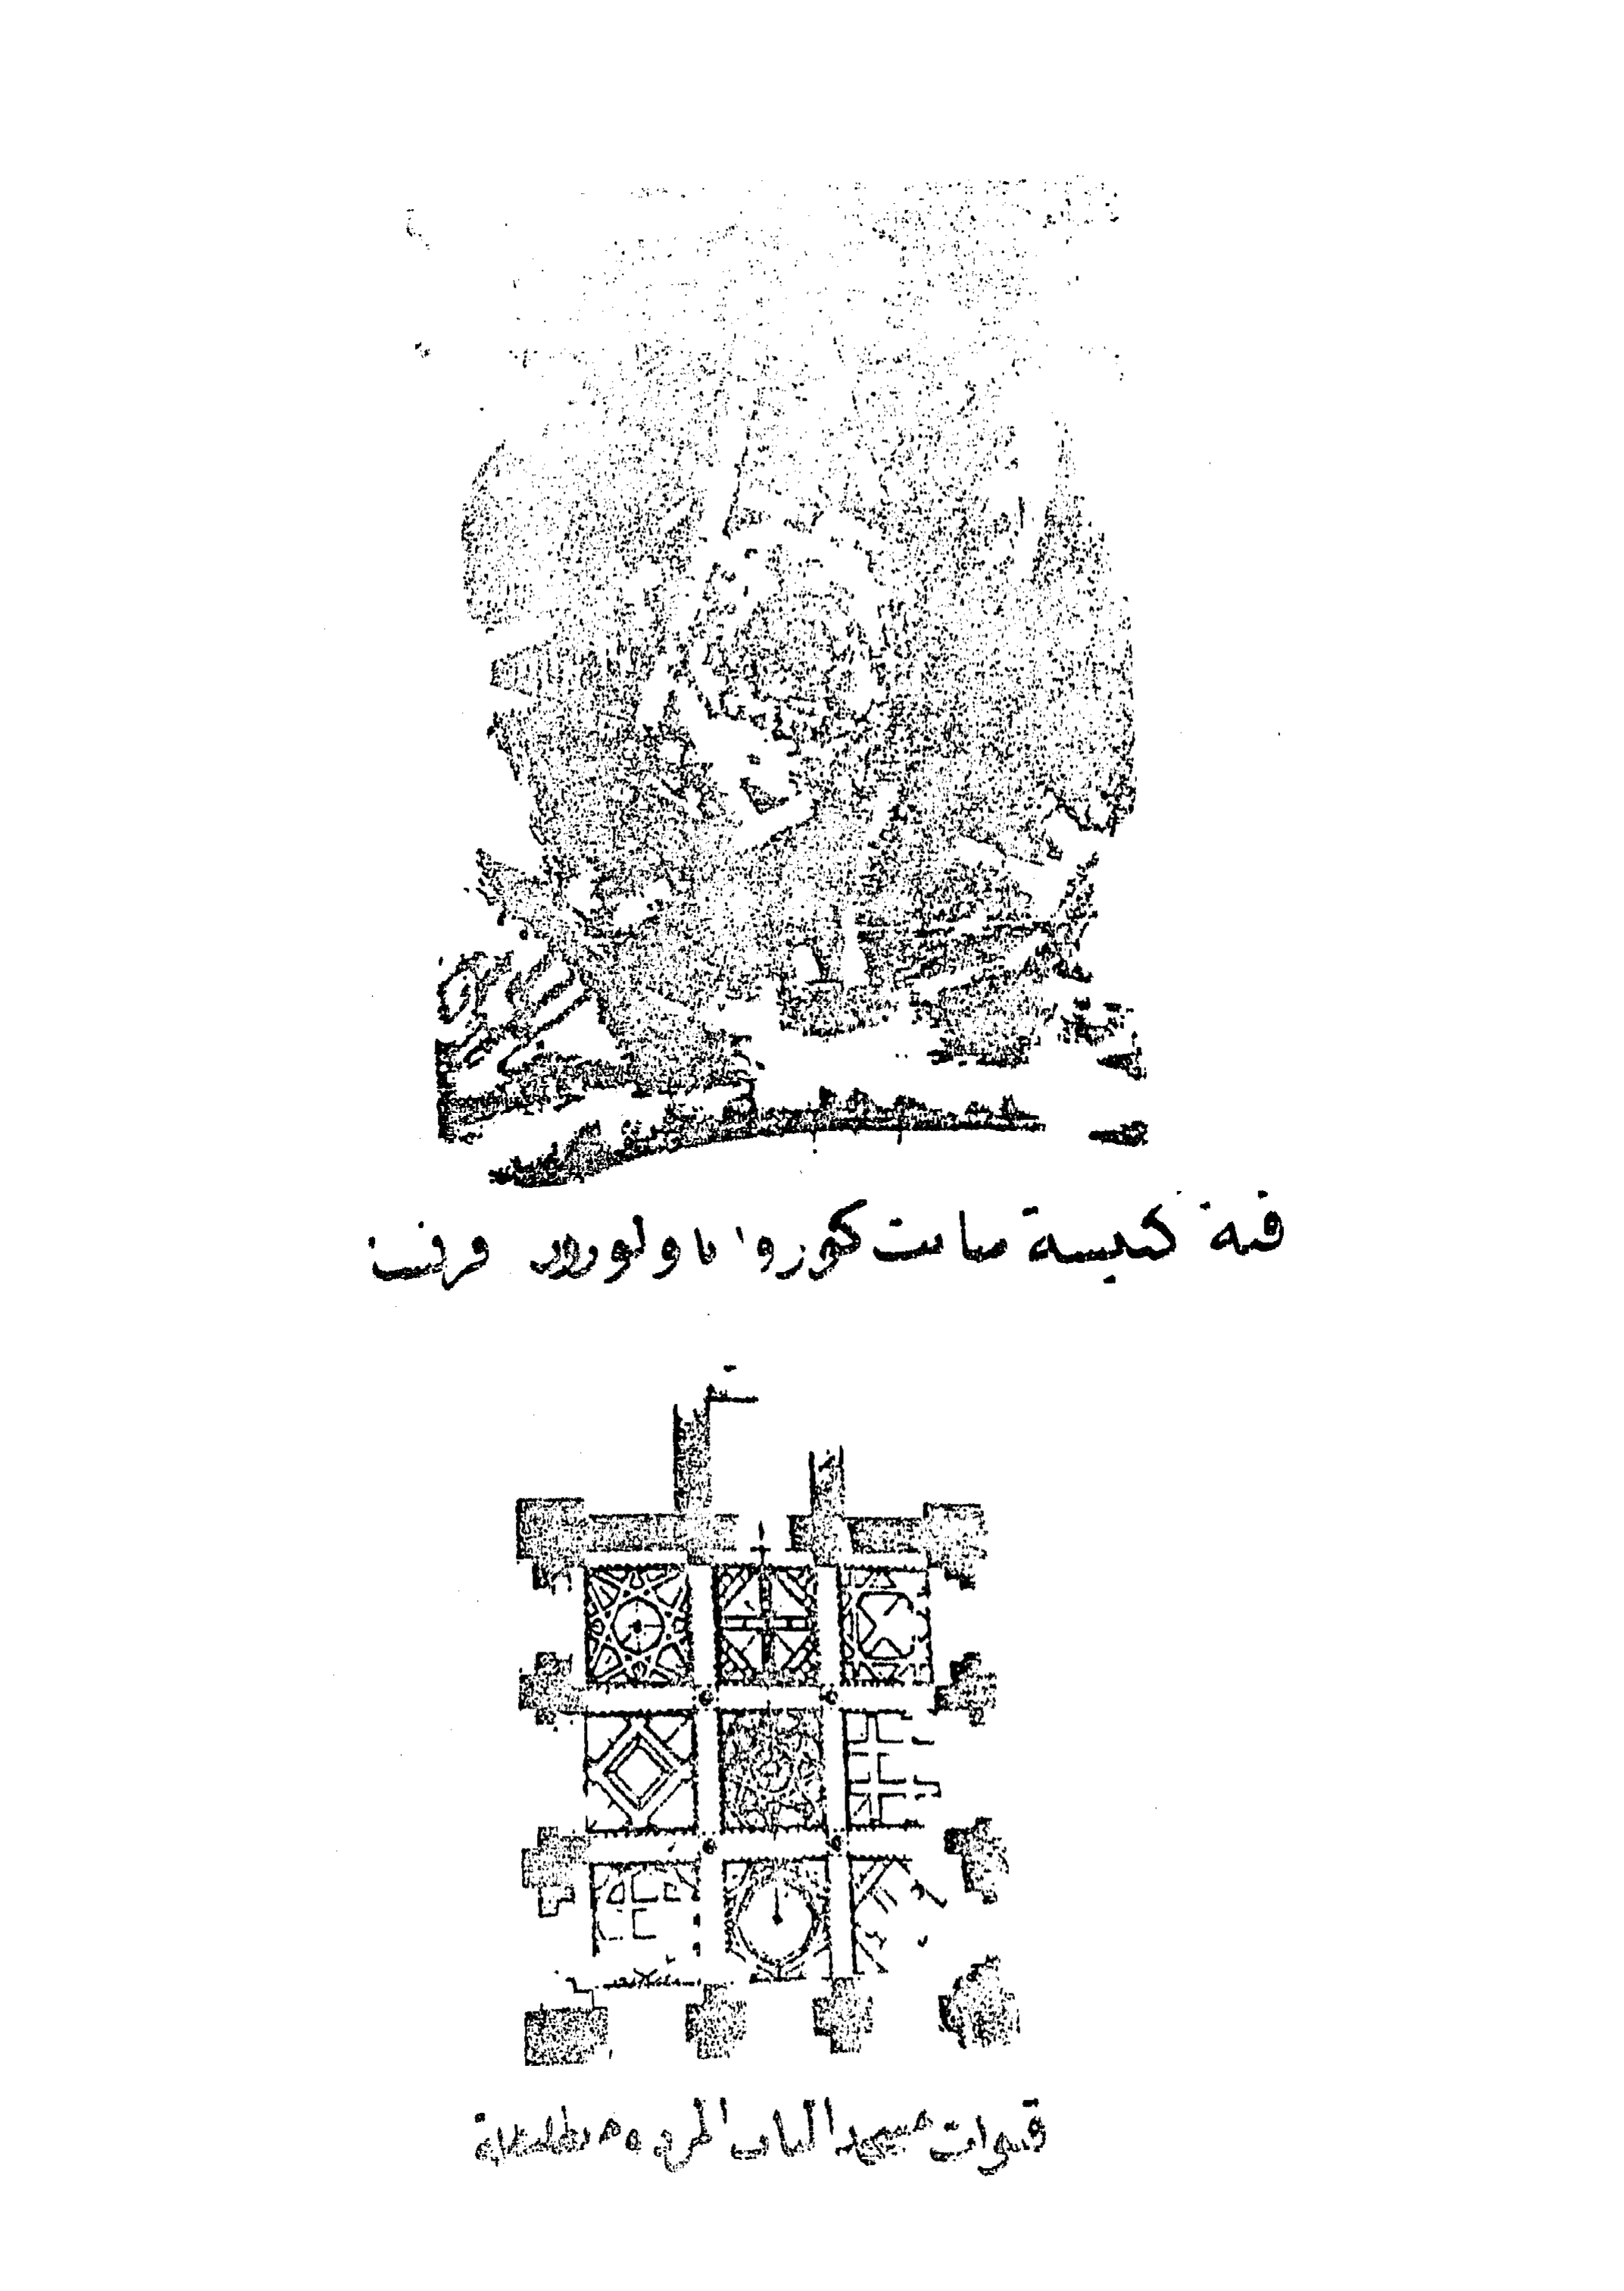 قبة كنيسة سانت كوزوا باولورون فرنسا
قبوات مسجد الباب المردوم بطليطلة